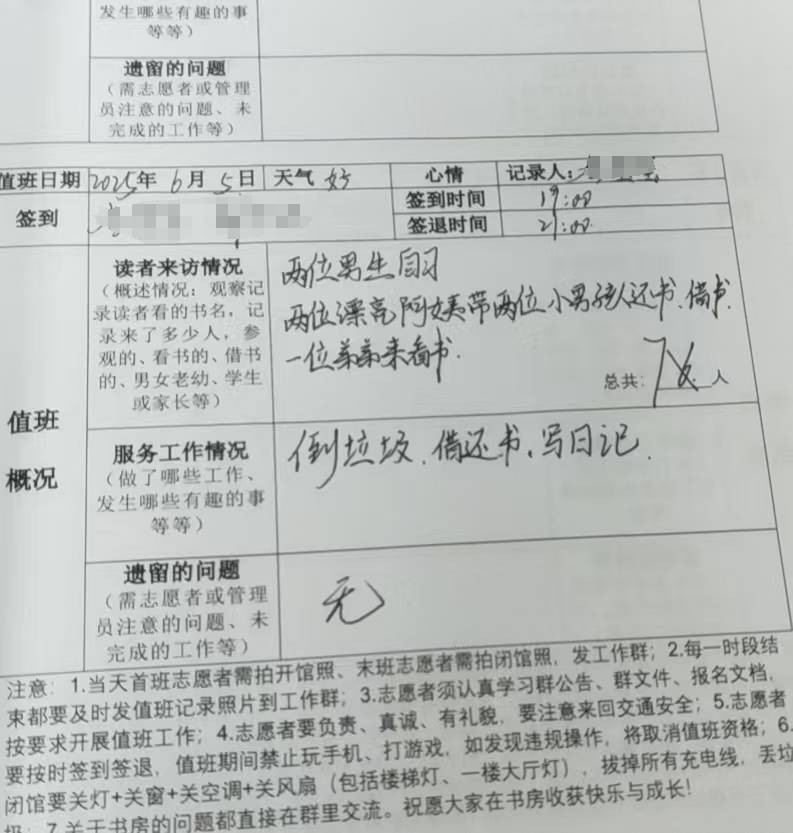 发生哪些有趣的事
等等）
遗留的问题
（需志愿者或管理
员注意的问题、未
完成的工作等）
值班日期 2025年 6月 5日 天气 好 心情 记录人：
签到 签到时间 19:00
签退时间 21:00
读者来访情况
（概述情况：观察记
录读者看的书名，记
录来了多少人，参
观的、看书的、借书
的、男女老幼、学生
或家长等）
两位男生自习
两位漂亮阿姨带两位小男孩还书、借书.
一位弟弟来看书.
总共：7人
值班
概况
服务工作情况
（做了哪些工作、
发生哪些有趣的事
等等）
倒垃圾、借还书、写日记.
遗留的问题
（需志愿者或管理
员注意的问题、未
完成的工作等）
无
注意：1.当天首班志愿者需拍开馆照、末班志愿者需拍闭馆照，发工作群；2.每一时段结
束都要及时发值班记录照片到工作群；3.志愿者须认真学习群公告、群文件、报名文档，
按要求开展值班工作；4.志愿者要负责、真诚、有礼貌，要注意来回交通安全；5.志愿者
要按时签到签退，值班期间禁止玩手机、打游戏，如发现违规操作，将取消值班资格；6.
闭馆要关灯+关窗+关空调+关风扇（包括楼梯灯、一楼大厅灯），拔掉所有充电线，丢垃
圾；7.关于书房的问题都直接在群里交流。祝愿大家在书房收获快乐与成长!